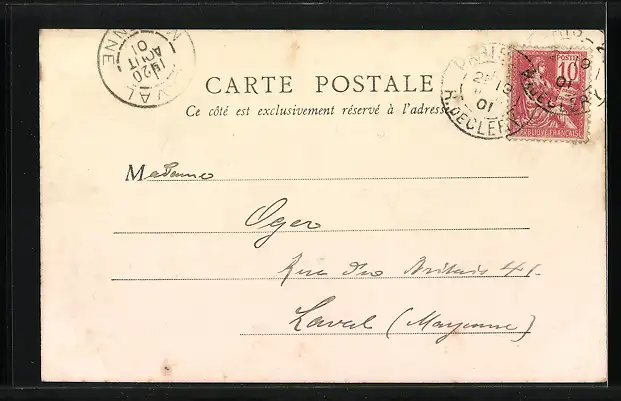 CARTE POSTALE
Ce côté est exclusivement réservé à l'adresse
Madame
Oger
Rue des Britais 41.
Laval (Mayenne)
LAVAL
MAYENNE
20
AOUT
01
PARIS
19
01
R. DECLERT
POSTES
10
RÉPUBLIQUE FRANÇAISE
19
01